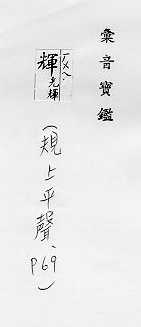 彙音寶鑑
輝 ㄏㄨㄟ 光輝
(規上平聲、P69)